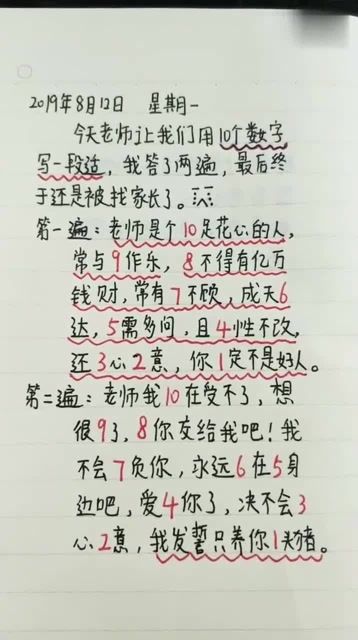 2019年8月12日 星期一
今天老师让我们用10个数字
写一段话，我答了两遍，最后终
于还是被找家长了。
第一遍：老师是个10足花心的人，
常与9作乐，8不得有亿万
钱财，常有7不顾，成天6
达，5需多问，且4性不改，
还3心2意，你1定不是好人。
第二遍：老师我10在受不了，想
很9了，8你交给我吧！我
不会7负你，永远6在5身
边吧，爱4你了，决不会3
心2意，我发誓只养你1头猪。